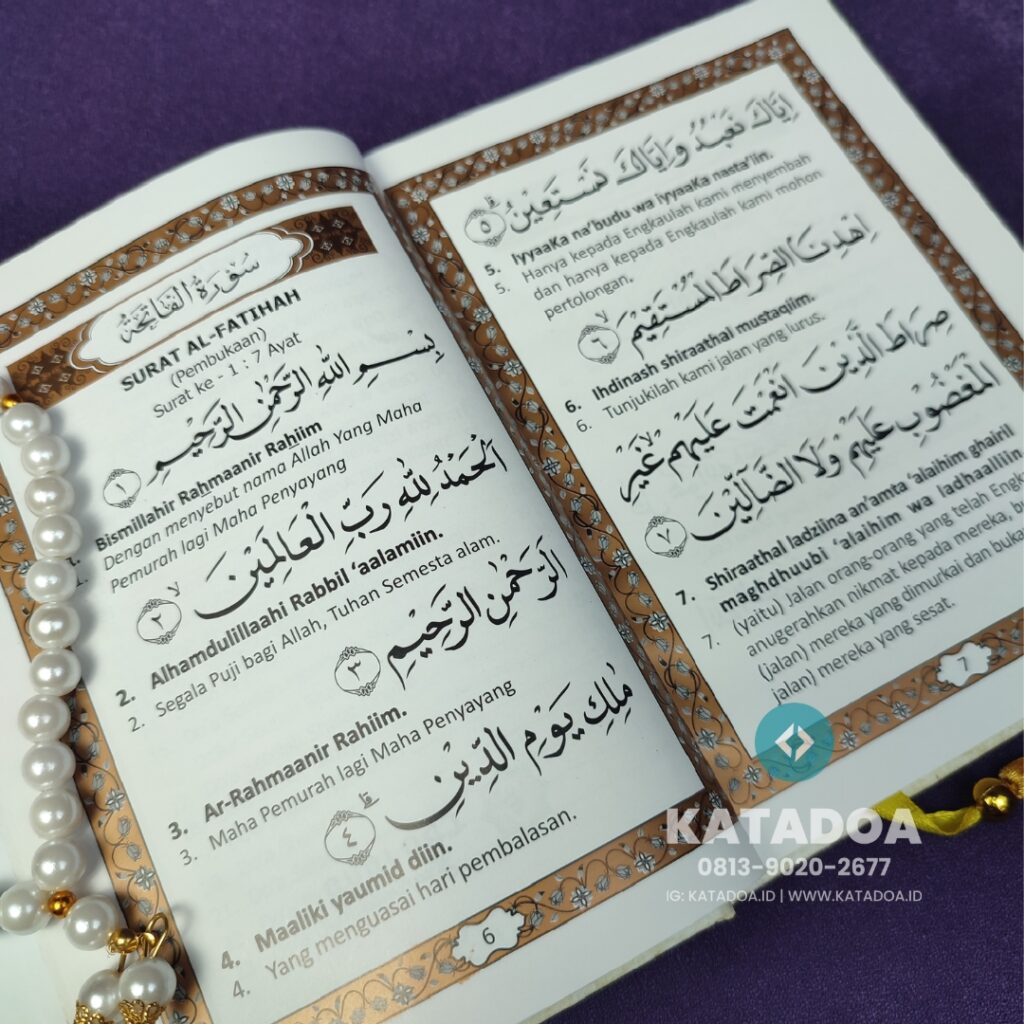 سُوْرَةُ الْفَاتِحَةُ
SURAT AL-FATIHAH
(Pembukaan)
Surat ke - 1 : 7 Ayat
بِسْمِ اللهِ الرَّحْمٰنِ الرَّحِيْمِ ﴿١﴾
1. Bismillahir Rahmaanir Rahiim
1. Dengan menyebut nama Allah Yang Maha
Pemurah lagi Maha Penyayang
اَلْحَمْدُ لِلّٰهِ رَبِّ الْعَالَمِيْنَ ﴿٢﴾
2. Alhamdulillaahi Rabbil ‘aalamiin.
2. Segala Puji bagi Allah, Tuhan Semesta alam.
اَلرَّحْمٰنِ الرَّحِيْمِ ﴿٣﴾
3. Ar-Rahmaanir Rahiim.
3. Maha Pemurah lagi Maha Penyayang
مٰلِكِ يَوْمِ الدِّيْنِ ﴿٤﴾
4. Maaliki yaumid diin.
4. Yang menguasai hari pembalasan.
6
اِيَّاكَ نَعْبُدُ وَاِيَّاكَ نَسْتَعِيْنُ ﴿٥﴾
5. IyyaaKa na’budu wa iyyaaKa nasta’iin.
5. Hanya kepada Engkaulah kami menyembah
dan hanya kepada Engkaulah kami mohon
pertolongan.
اِهْدِنَا الصِّرَاطَ الْمُسْتَقِيْمَ ﴿٦﴾
6. Ihdinash shiraathal mustaqiim.
6. Tunjukilah kami jalan yang lurus.
صِرَاطَ الَّذِيْنَ اَنْعَمْتَ عَلَيْهِمْ غَيْرِ
الْمَغْضُوْبِ عَلَيْهِمْ وَلَا الضَّالِّيْنَ ﴿٧﴾
7. Shiraathal ladziina an’amta ‘alaihim ghairil
maghdhuubi ‘alaihim wa ladhaalliin
7. (yaitu) Jalan orang-orang yang telah
anugerahkan nikmat kepada mereka,
(jalan) mereka yang dimurkai dan
jalan) mereka yang sesat.
7
KATADOA
0813-9020-2677
IG: KATADOA.ID | WWW.KATADOA.ID